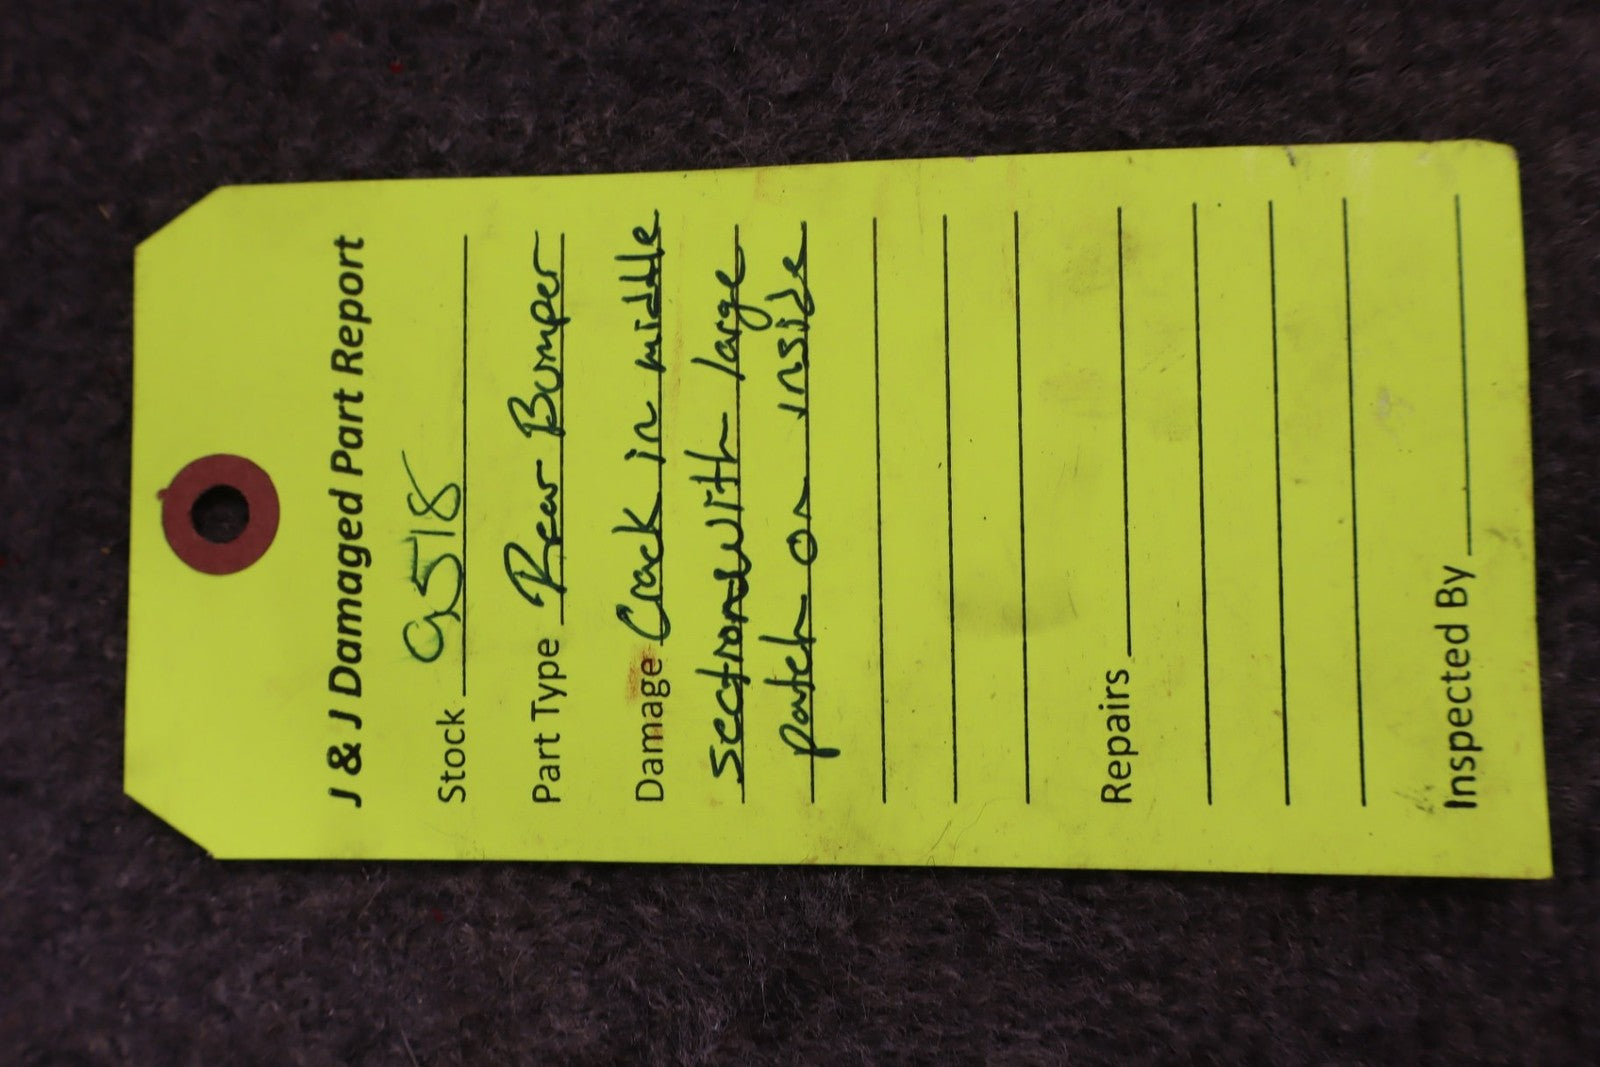 J & J Damaged Part Report
Stock 9518
Part Type Rear Bumper
Damage Crack in middle
section with large
patch on inside
Repairs
Inspected By